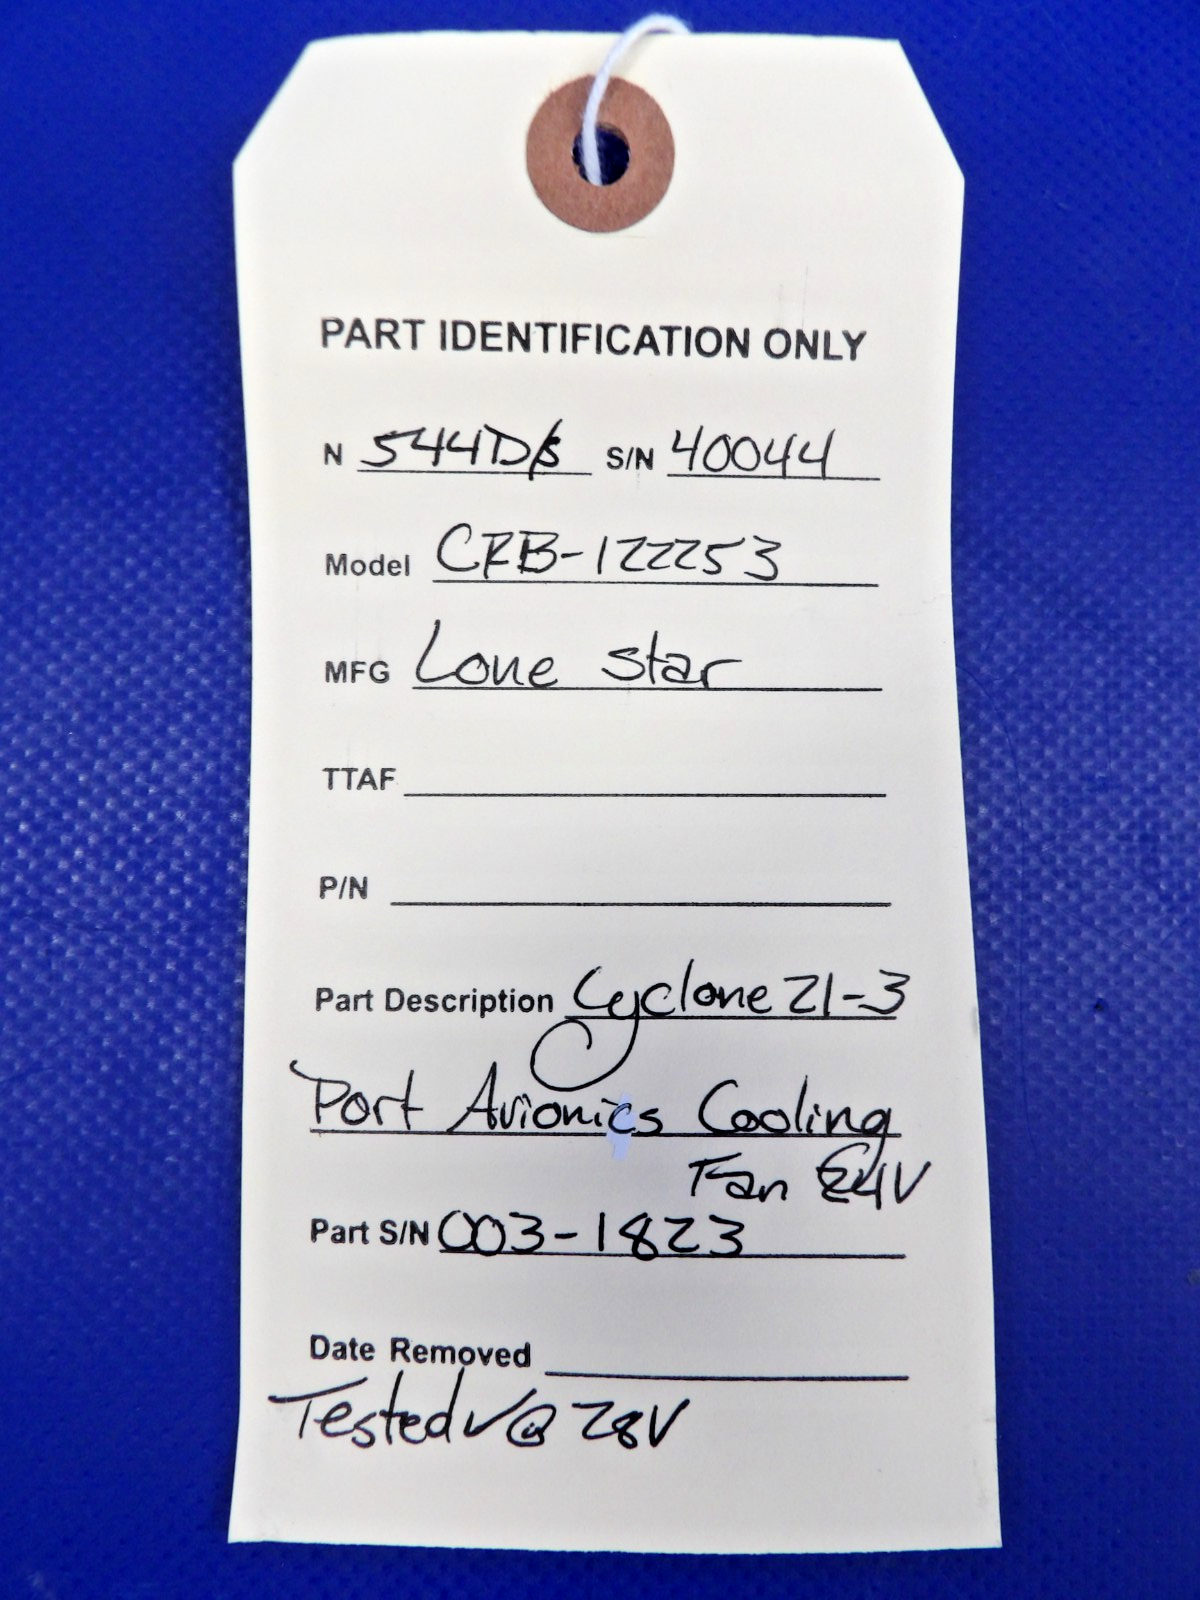 PART IDENTIFICATION ONLY
N 544D S/N 40044
Model CFB-122253
MFG Lone Star
TTAF
P/N
Part Description Cyclone 21-3
Port Avionics Cooling
Fan 24V
Part S/N 003-1823
Date Removed
Tested ✓ @ 28V